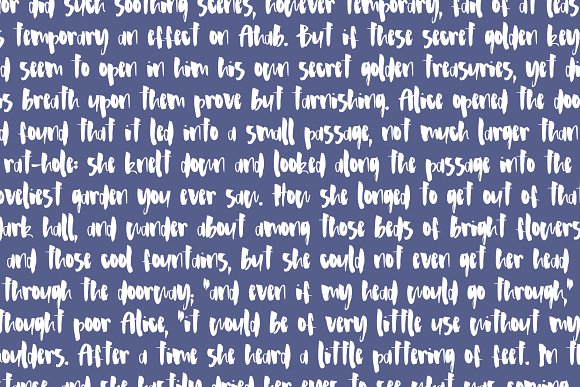 or did such soothing scenes, however temporary, fail of at leas
s temporary an effect on Ahab. But if these secret golden key
d seem to open in him his own secret golden treasuries, yet di
is breath upon them prove but tarnishing. Alice opened the doo
d found that it led into a small passage, not much larger than
rat-hole: she knelt down and looked along the passage into the
oveliest garden you ever saw. How she longed to get out of that
dark hall, and wander about among those beds of bright flowers
and those cool fountains, but she could not even get her head
through the doorway; "and even if my head would go through,"
thought poor Alice, "it would be of very little use without my
houlders. After a time she heard a little pattering of feet. In th
stance, and she hastily dried her eyes to see what was coming